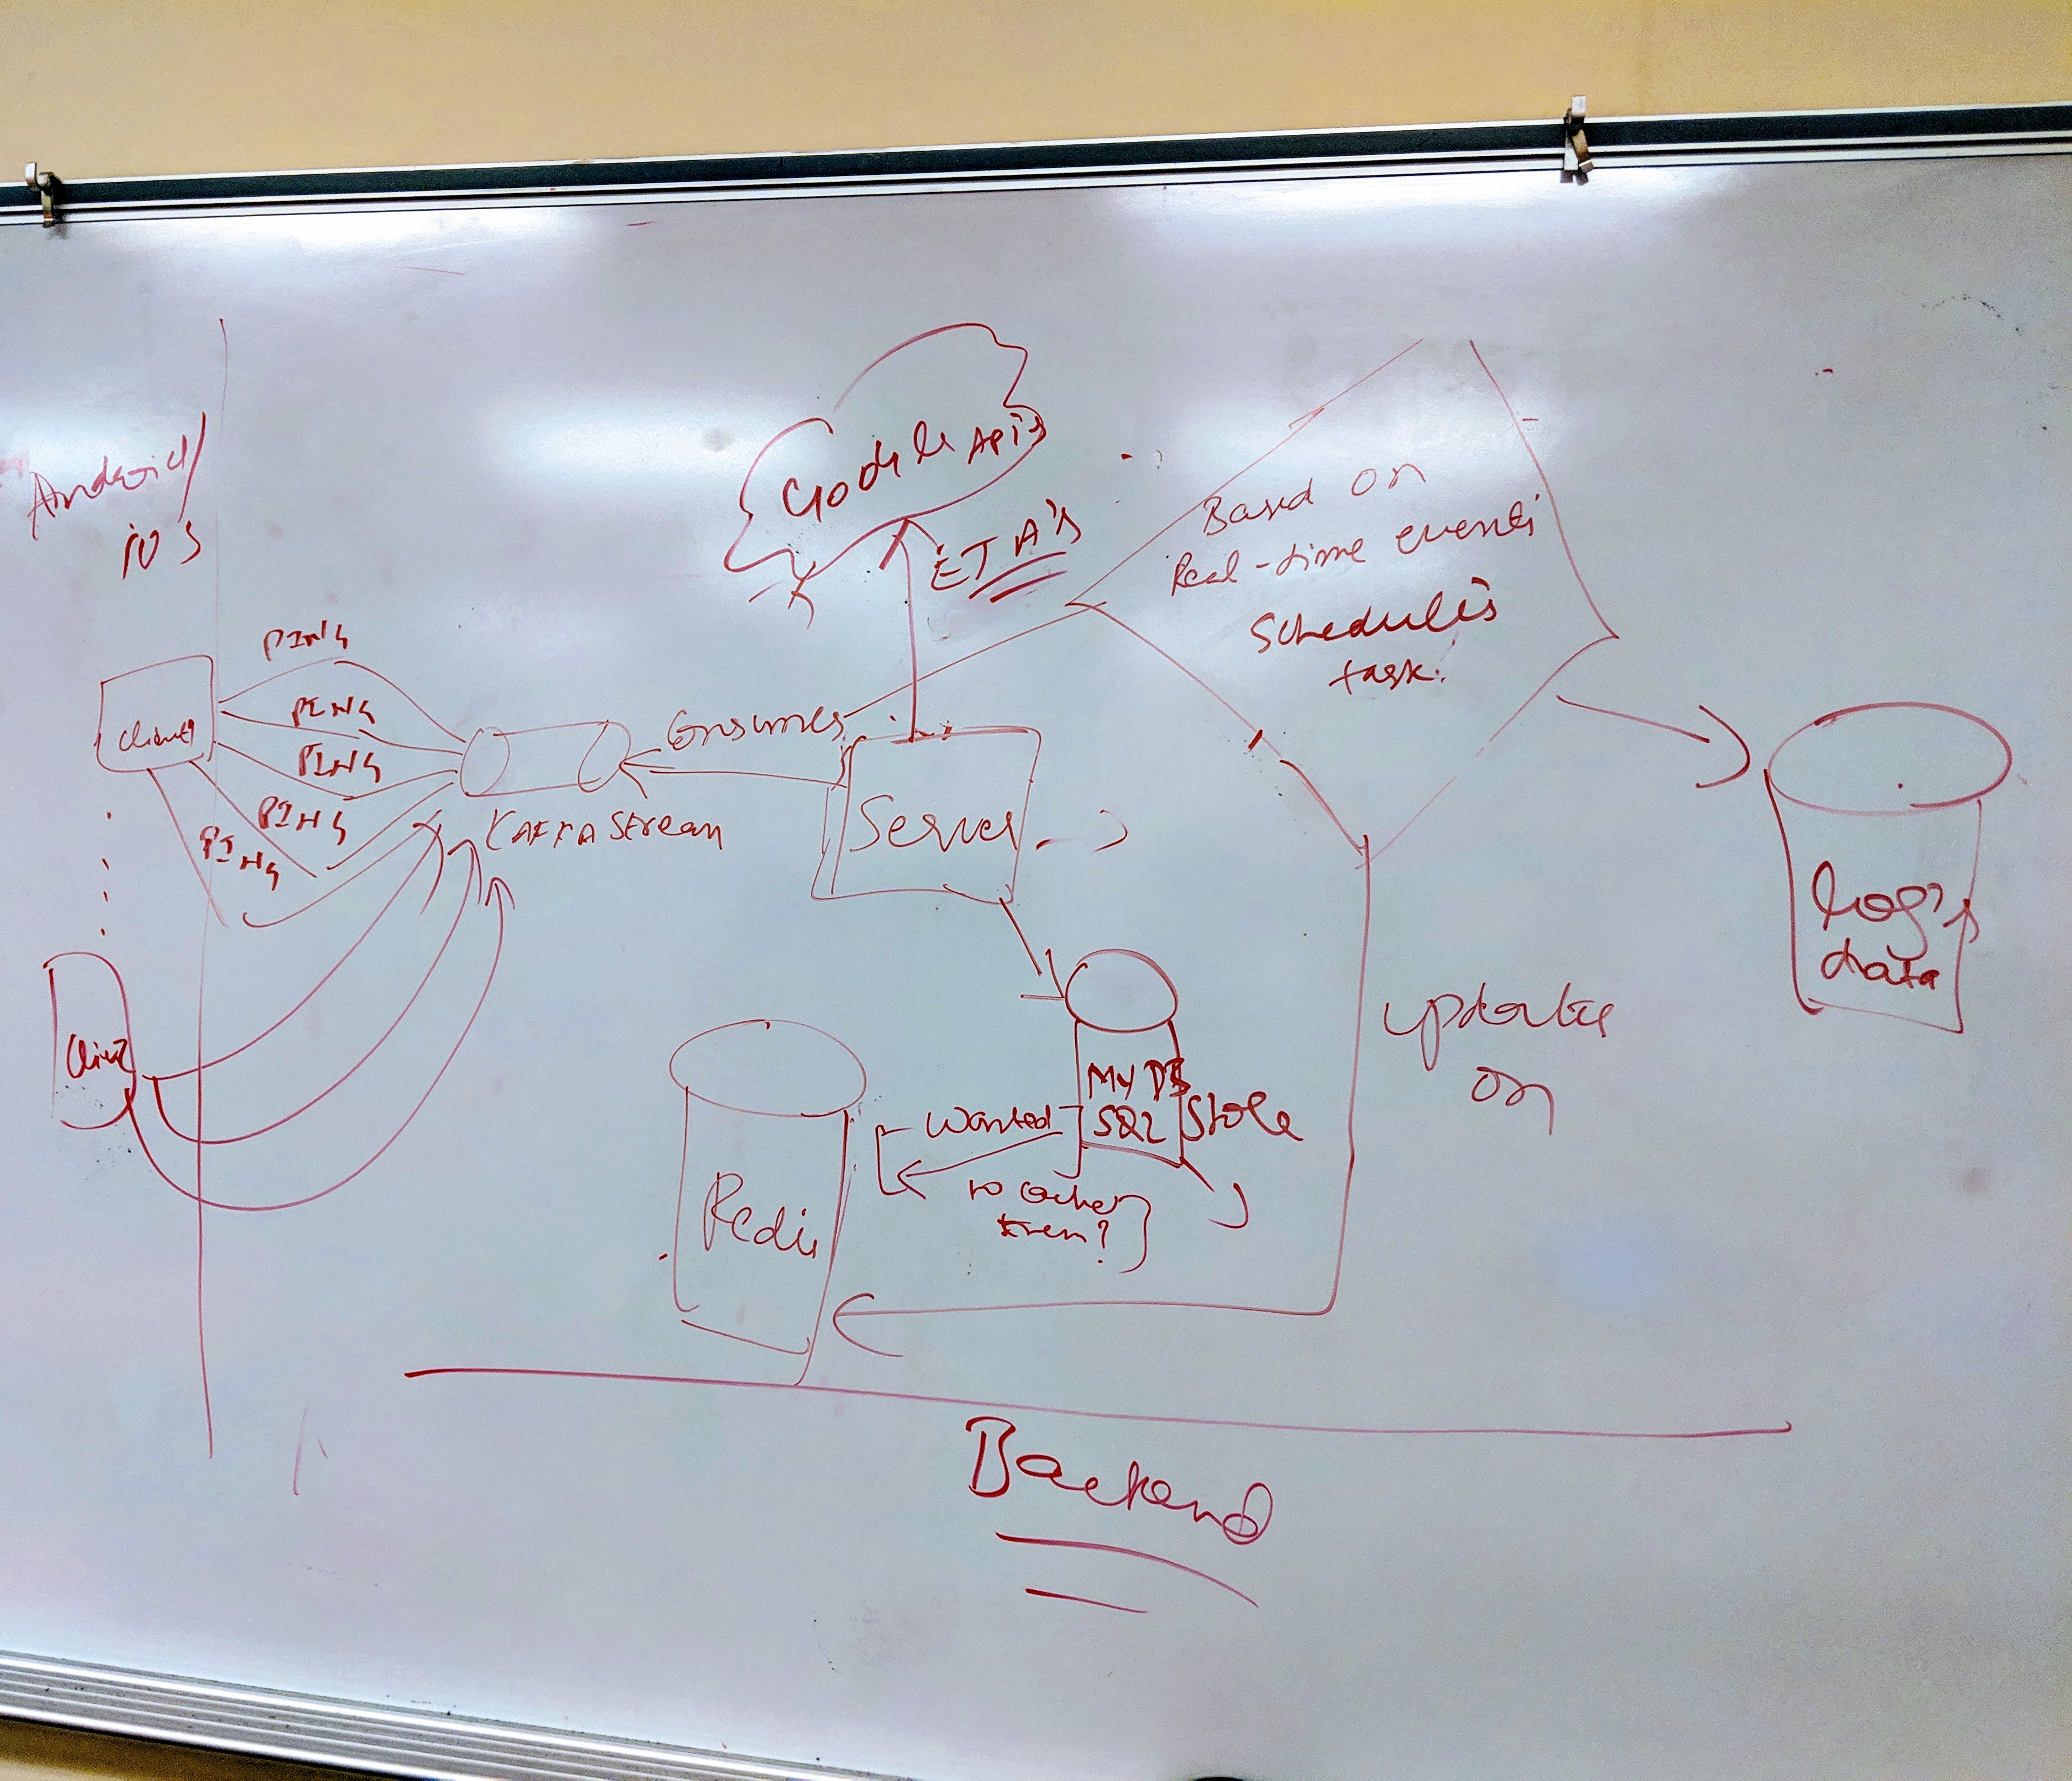 Android/
iOS
Google APIs
ETA's
Based on
Real-time events
Schedules
task.
PING
PING
PING
PING
PING
Client
Consumes
KAFKA Stream
Server
Log's
data
Client
MY DB
SQL Store
Wanted
to cache
them?
Redis
updates
on
Backend